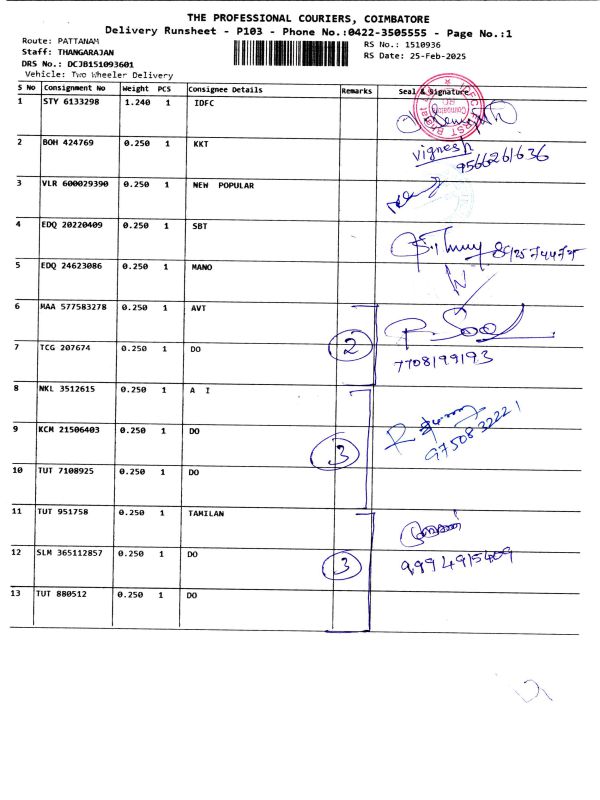 THE PROFESSIONAL COURIERS, COIMBATORE
Delivery Runsheet - P103 - Phone No.:0422-3505555 - Page No.:1
Route: PATTANAM
RS No.: 1510936
Staff: THANGARAJAN
RS Date: 25-Feb-2025
DRS No.: DCJB151093601
Vehicle: Two Wheeler Delivery
S No Consignment No Weight PCS Consignee Details Remarks Seal & Signature
1 STY 6133298 1.240 1 IDFC
2 BOH 424769 0.250 1 KKT vignesh
9566261636
3 VLR 600029390 0.250 1 NEW POPULAR
4 EDQ 20220409 0.250 1 SBT
5 EDQ 24623086 0.250 1 MANO
6 MAA 577583278 0.250 1 AVT
7 TCG 207674 0.250 1 DO 2 7708199193
8 NKL 3512615 0.250 1 A I
9 KCM 21506403 0.250 1 DO 3 9750832221
10 TUT 7108925 0.250 1 DO
11 TUT 951758 0.250 1 TAMILAN
12 SLM 365112857 0.250 1 DO 3 9994915409
13 TUT 880512 0.250 1 DO